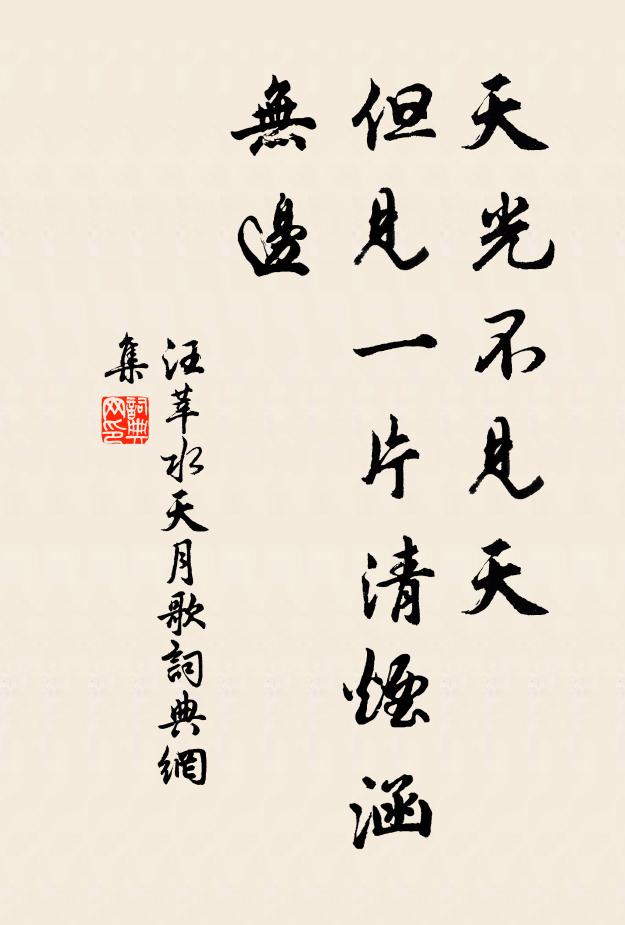 天光不見天
但見一片清煙涵
無邊
汪莘水天月歌詞典網
集
詞典
网印